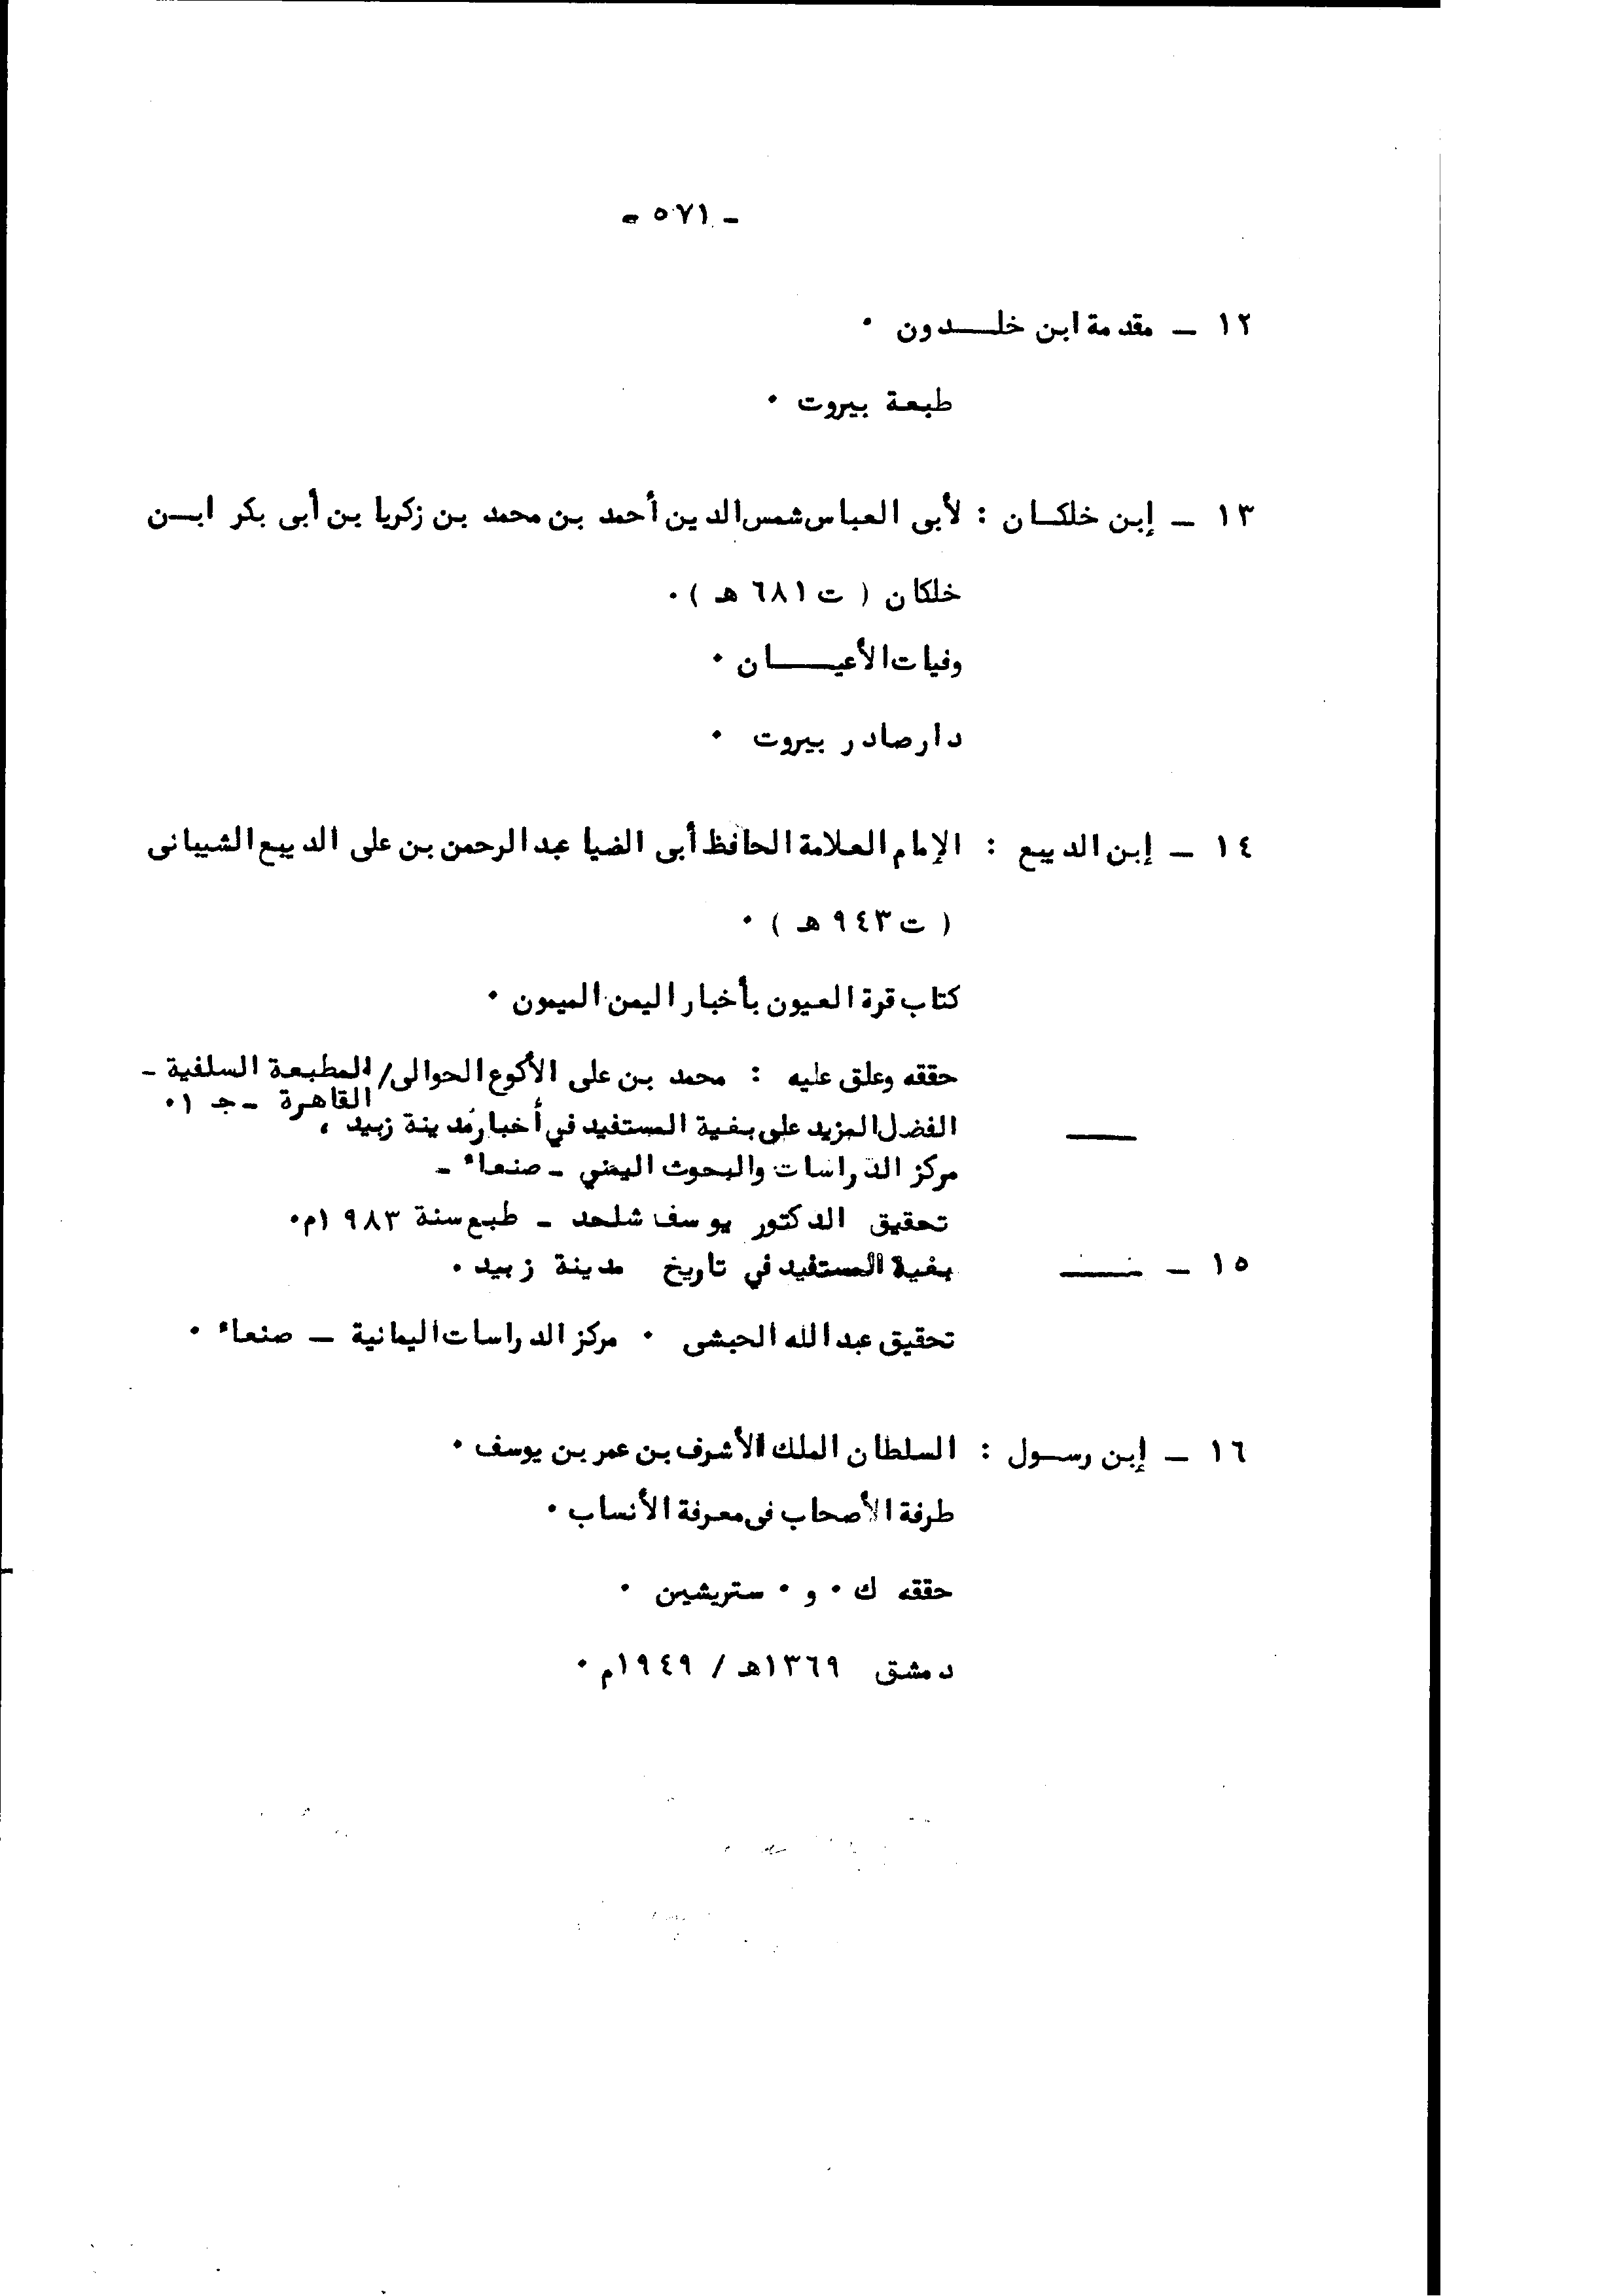 - ٥٧١ -
١٢ - مقدمة ابن خلـــدون ٠
طبعة بيروت ٠
١٣ - إبن خلكـان : لأبى العباس شمس الدين أحمد بن محمد بن زكريا بن أبى بكر ابـن
خلكان ( ت ٦٨١ هـ ) ٠
وفيات الأعيـــان ٠
دار صادر بيروت ٠
١٤ - إبن الديبع : الإمام العلامة الحافظ أبى الضيا عبد الرحمن بن على الديبع الشيبانى
( ت ٩٤٣ هـ ) ٠
كتاب قرة العيون بأخبار اليمن الميمون ٠
حققه وعلق عليه : محمد بن على الأكوع الحوالى/ المطبعة السلفية -
القاهرة - جـ ١٠
ـــــ الفضل المزيد على بغية المستفيد في أخبار مدينة زبيد ،
مركز الدراسات والبحوث اليمني - صنعاء -
تحقيق الدكتور يوسف شلحد - طبع سنة ١٩٨٣م٠
١٥ - ـــــ بغية المستفيد في تاريخ مدينة زبيد ٠
تحقيق عبد الله الحبشى ٠ مركز الدراسات اليمانية - صنعاء ٠
١٦ - إبن رسـول : السلطان الملك الأشرف بن عمر بن يوسف ٠
طرفة الأصحاب فى معرفة الأنساب ٠
حققه ك ٠ و ٠ ستريشين ٠
دمشق ١٣٦٩هـ / ١٩٤٩م ٠